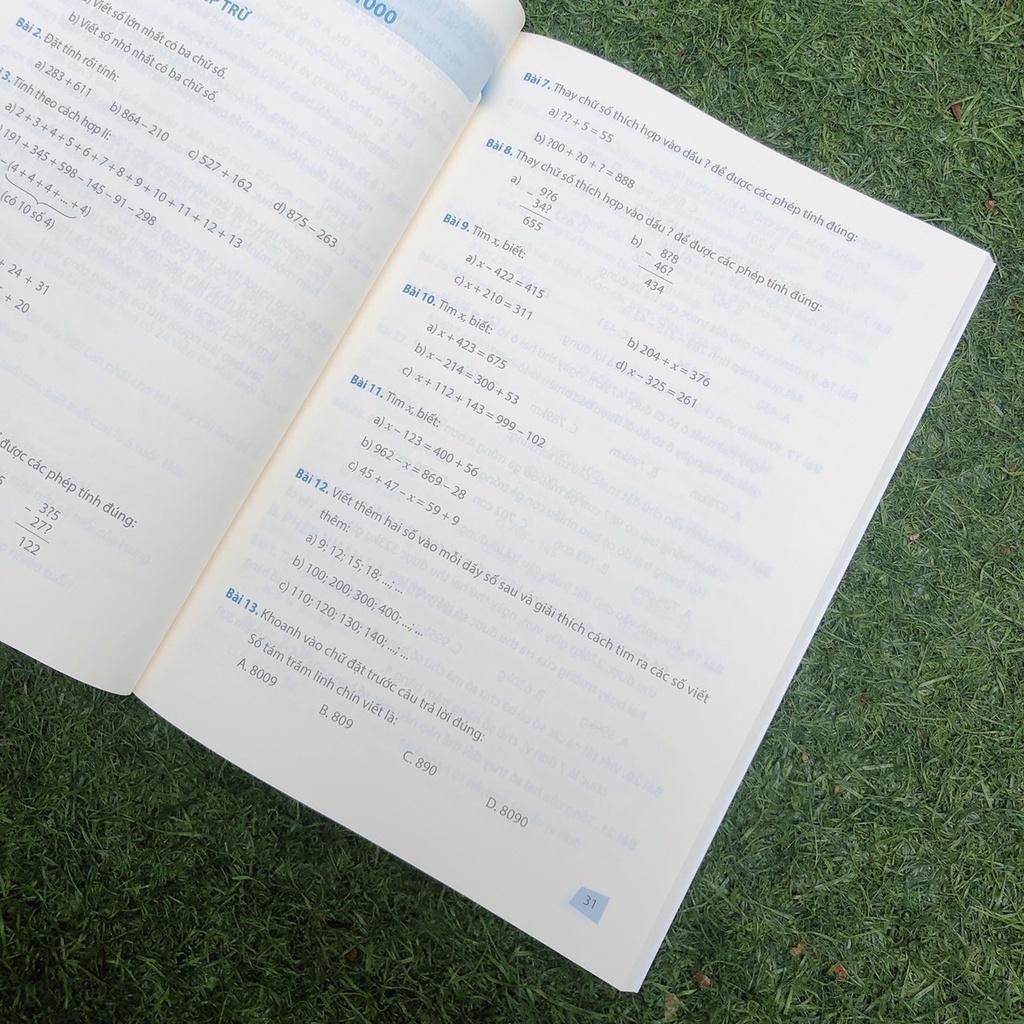 1000
P TRỪ
a) Viết số lớn nhất có ba chữ số.
b) Viết số nhỏ nhất có ba chữ số.
Bài 2. Đặt tính rồi tính:
a) 283 + 611 b) 864 – 210 c) 527 + 162 d) 875 – 263
3. Tính theo cách hợp lí:
a) 2 + 3 + 4 + 5 + 6 + 7 + 8 + 9 + 10 + 11 + 12 + 13
191 + 345 + 598 – 145 – 91 – 298
– (4 + 4 + 4 + ... + 4)
(có 10 số 4)
+ 24 + 31
+ 20
được các phép tính đúng:
– 3?5
27?
122
Bài 7. Thay chữ số thích hợp vào dấu ? để được các phép tính đúng:
a) ?? + 5 = 55
b) ?00 + ?0 + ? = 888
Bài 8. Thay chữ số thích hợp vào dấu ? để được các phép tính đúng:
a) – 9?6 b) – 8?8
34? 46?
655 434
Bài 9. Tìm x, biết:
a) x – 422 = 415 b) 204 + x = 376
c) x + 210 = 311 d) x – 325 = 261
Bài 10. Tìm x, biết:
a) x + 423 = 675
b) x – 214 = 300 + 53
c) x + 112 + 143 = 999 – 102
Bài 11. Tìm x, biết:
a) x – 123 = 400 + 56
b) 962 – x = 869 – 28
c) 45 + 47 – x = 59 + 9
Bài 12. Viết thêm hai số vào mỗi dãy số sau và giải thích cách tìm ra các số viết
thêm:
a) 9; 12; 15; 18; ...; ...
b) 100; 200; 300; 400; ...; ...
c) 110; 120; 130; 140; ...; ...
Bài 13. Khoanh vào chữ đặt trước câu trả lời đúng:
Số tám trăm linh chín viết là:
A. 8009 B. 809 C. 890 D. 8090
31